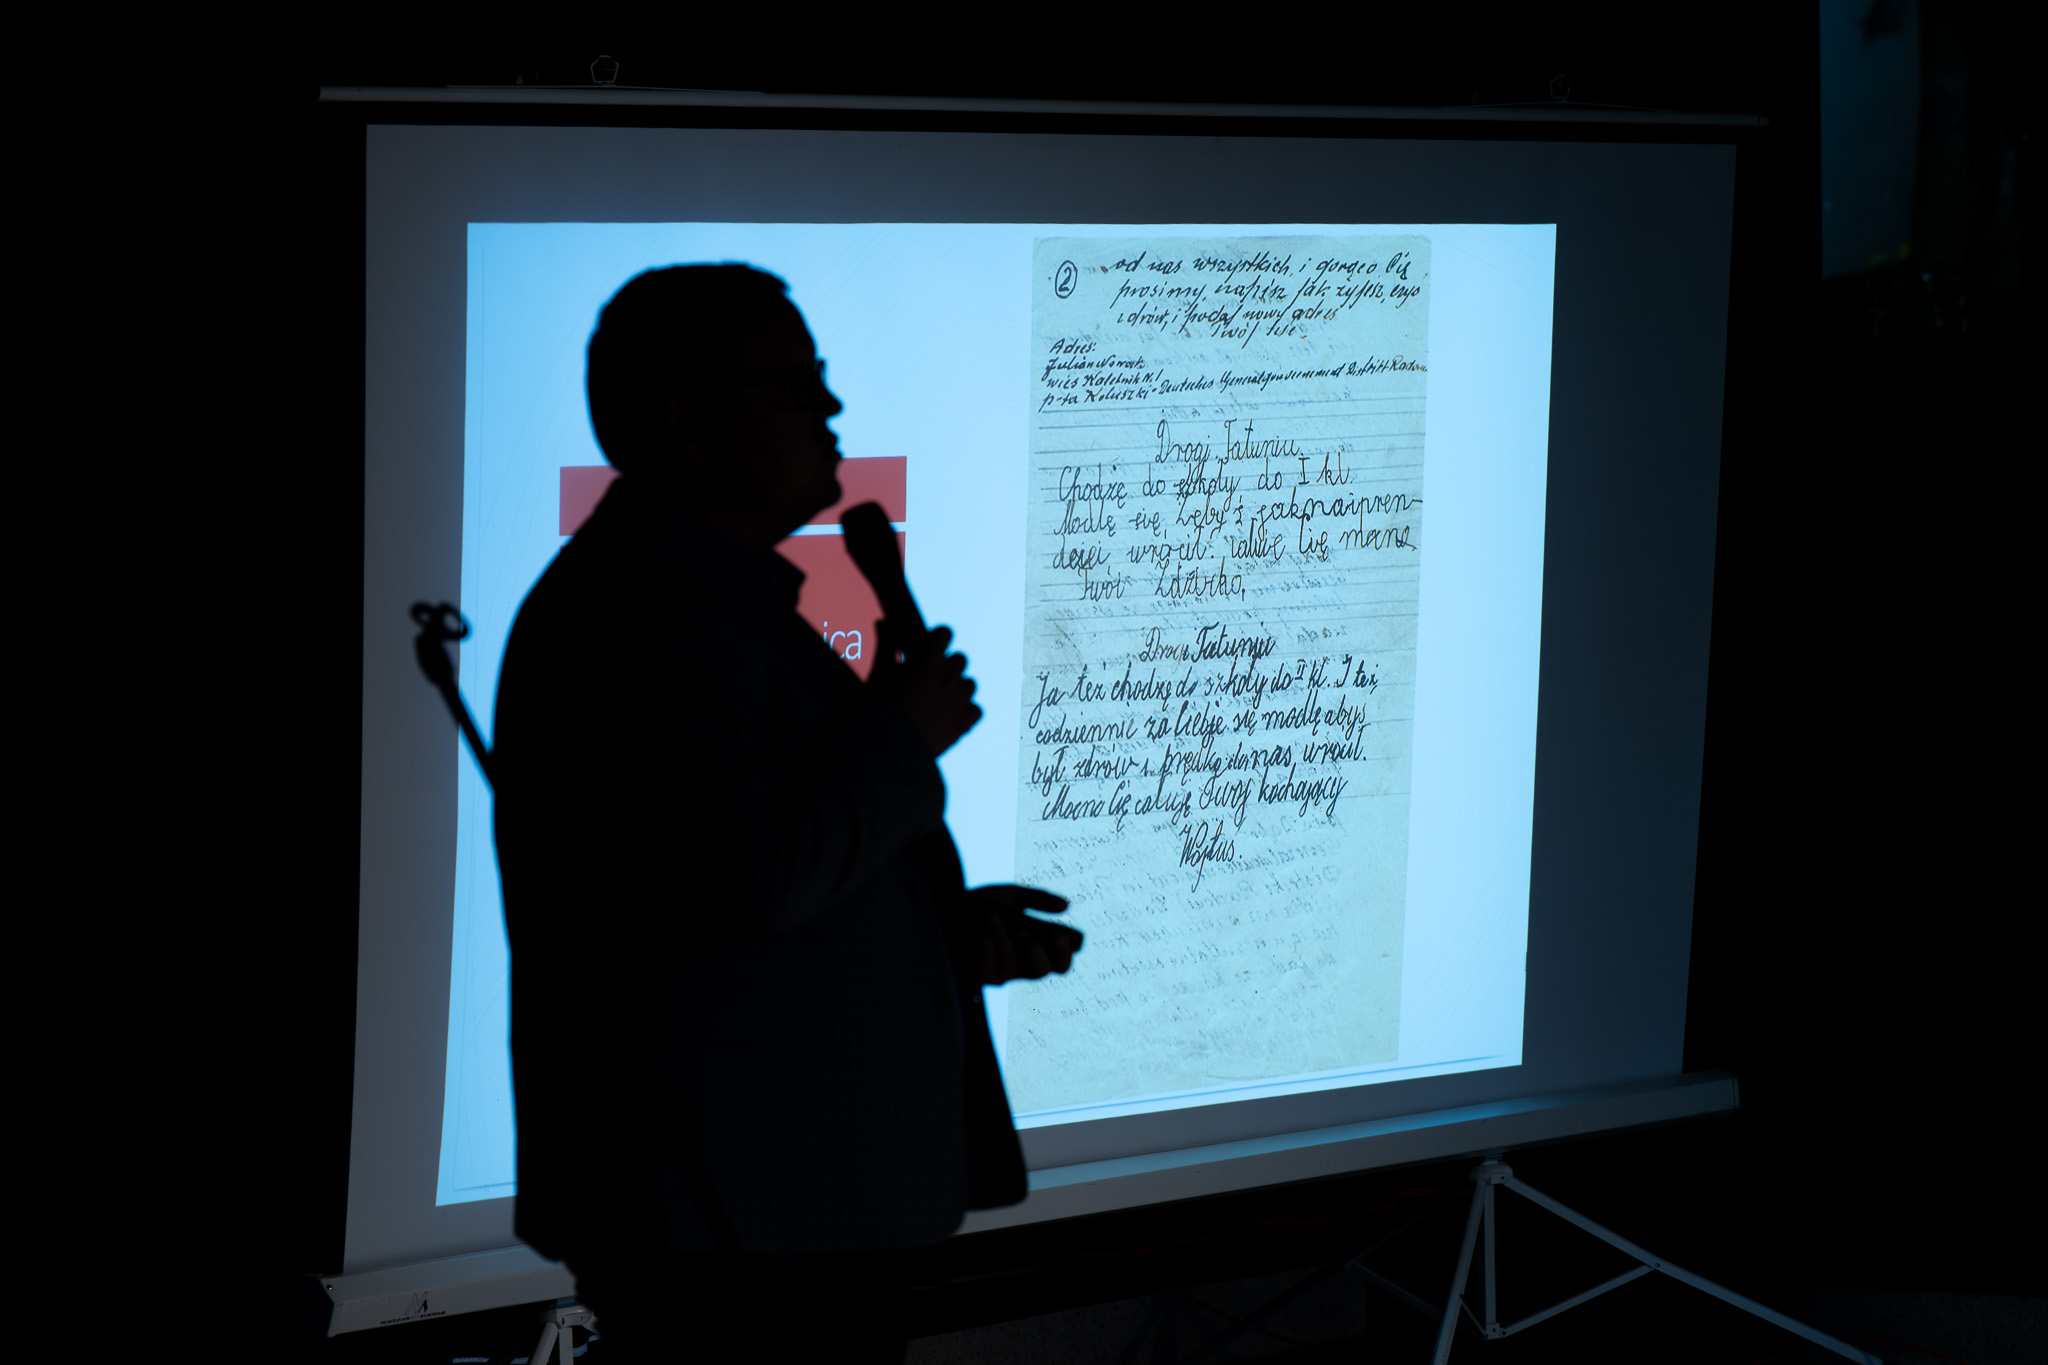 ica
2
od nas wszystkich, i gorąco Cię
prosimy, napisz jak żyjesz, czyś
zdrów, i podaj nowy adres
Twój
Adres:
Julian Nowak
wieś Kaletnik N. 1
p-ta Koluszki - Deutsches Generalgouvernement Distrikt Radom
Drogi Tatuniu.
Chodzę do szkoły do I kl.
Modlę się, żebyś jaknaipren-
dzei wrócił. Cię
Twói Zdzicho,
Drogi Tatuniu
Ja też chodzę do szkoły do II kl. I też
codziennie za Ciebie się modlę abyś
był zdrów i prędko do nas wrócił.
Mocno Cię całuję Twój kochający
Wojtuś.